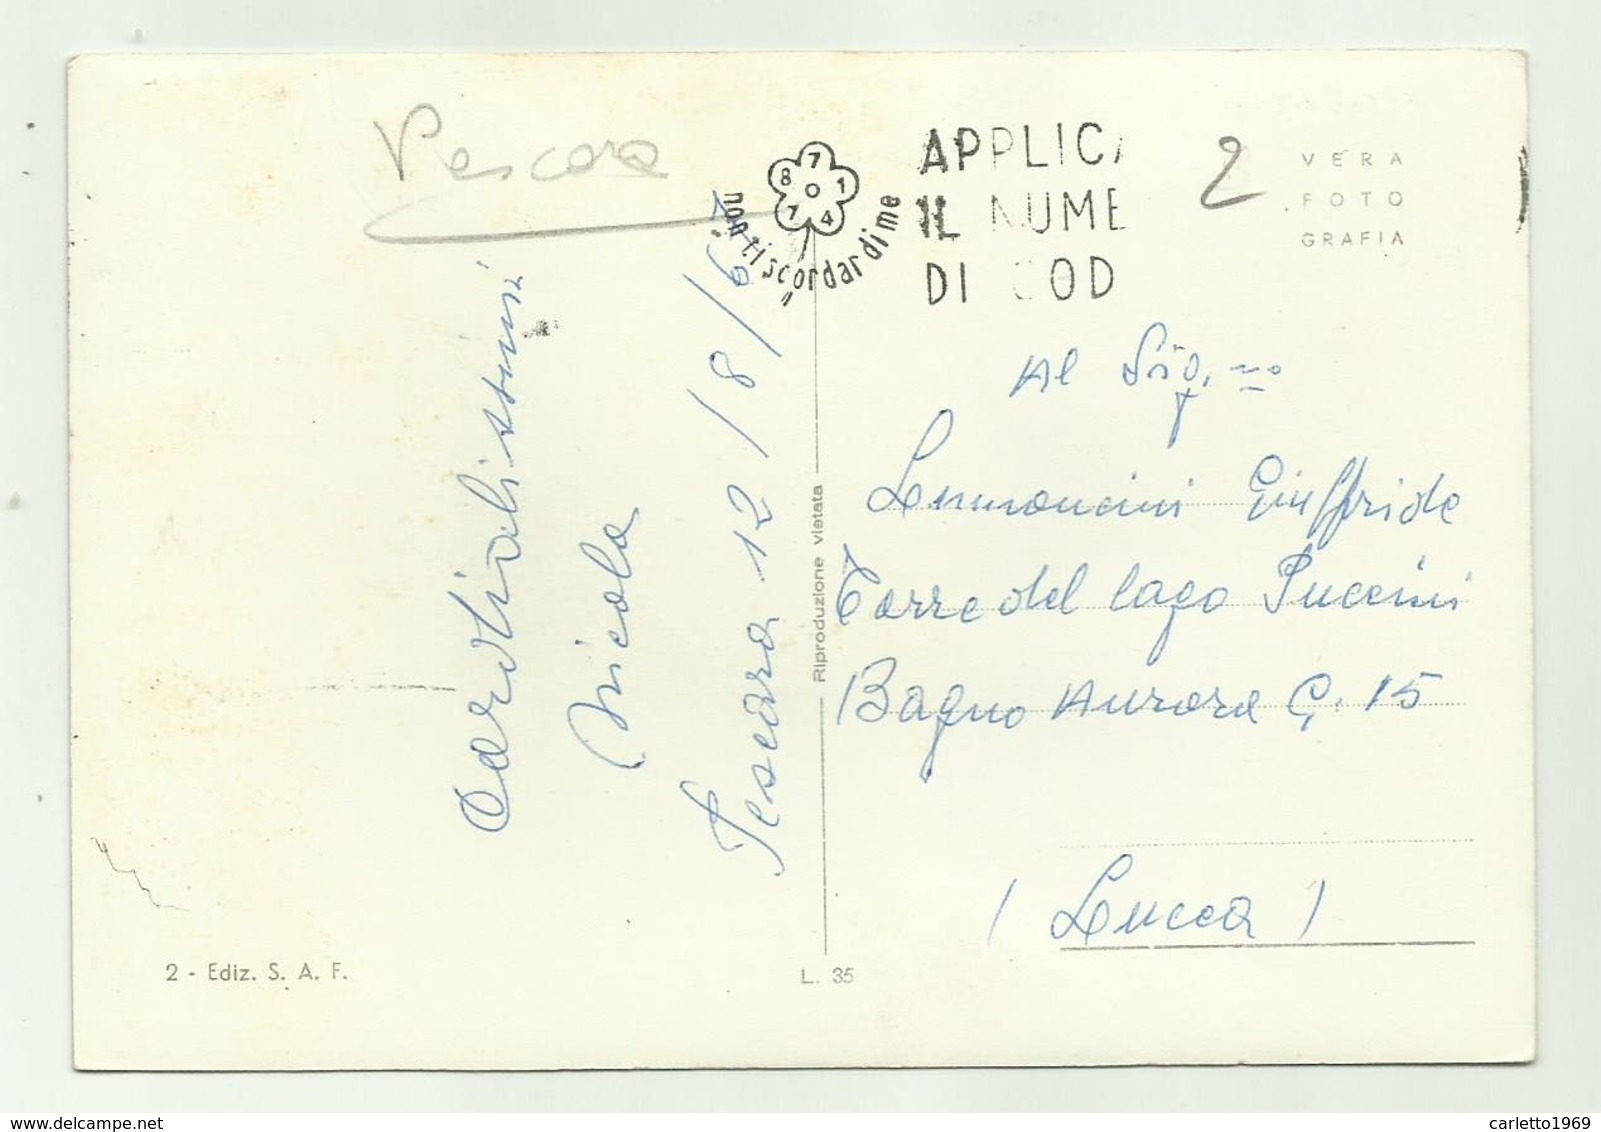 Pescara
7
8 1
7 4
"non ti scordar di me"
APPLICA
IL NUME
DI COD
2
VERA
FOTO
GRAFIA
Cordialissimi
Nicola
Pescara 12/8/6
Riproduzione vietata
Al Sig.no
Lemmoncini Giuffrida
Torre del lago Puccini
Bagno Aurora G. 15
(Lucca)
2 - Ediz. S. A. F.
L. 35
www.delcampe.net
carletto1969